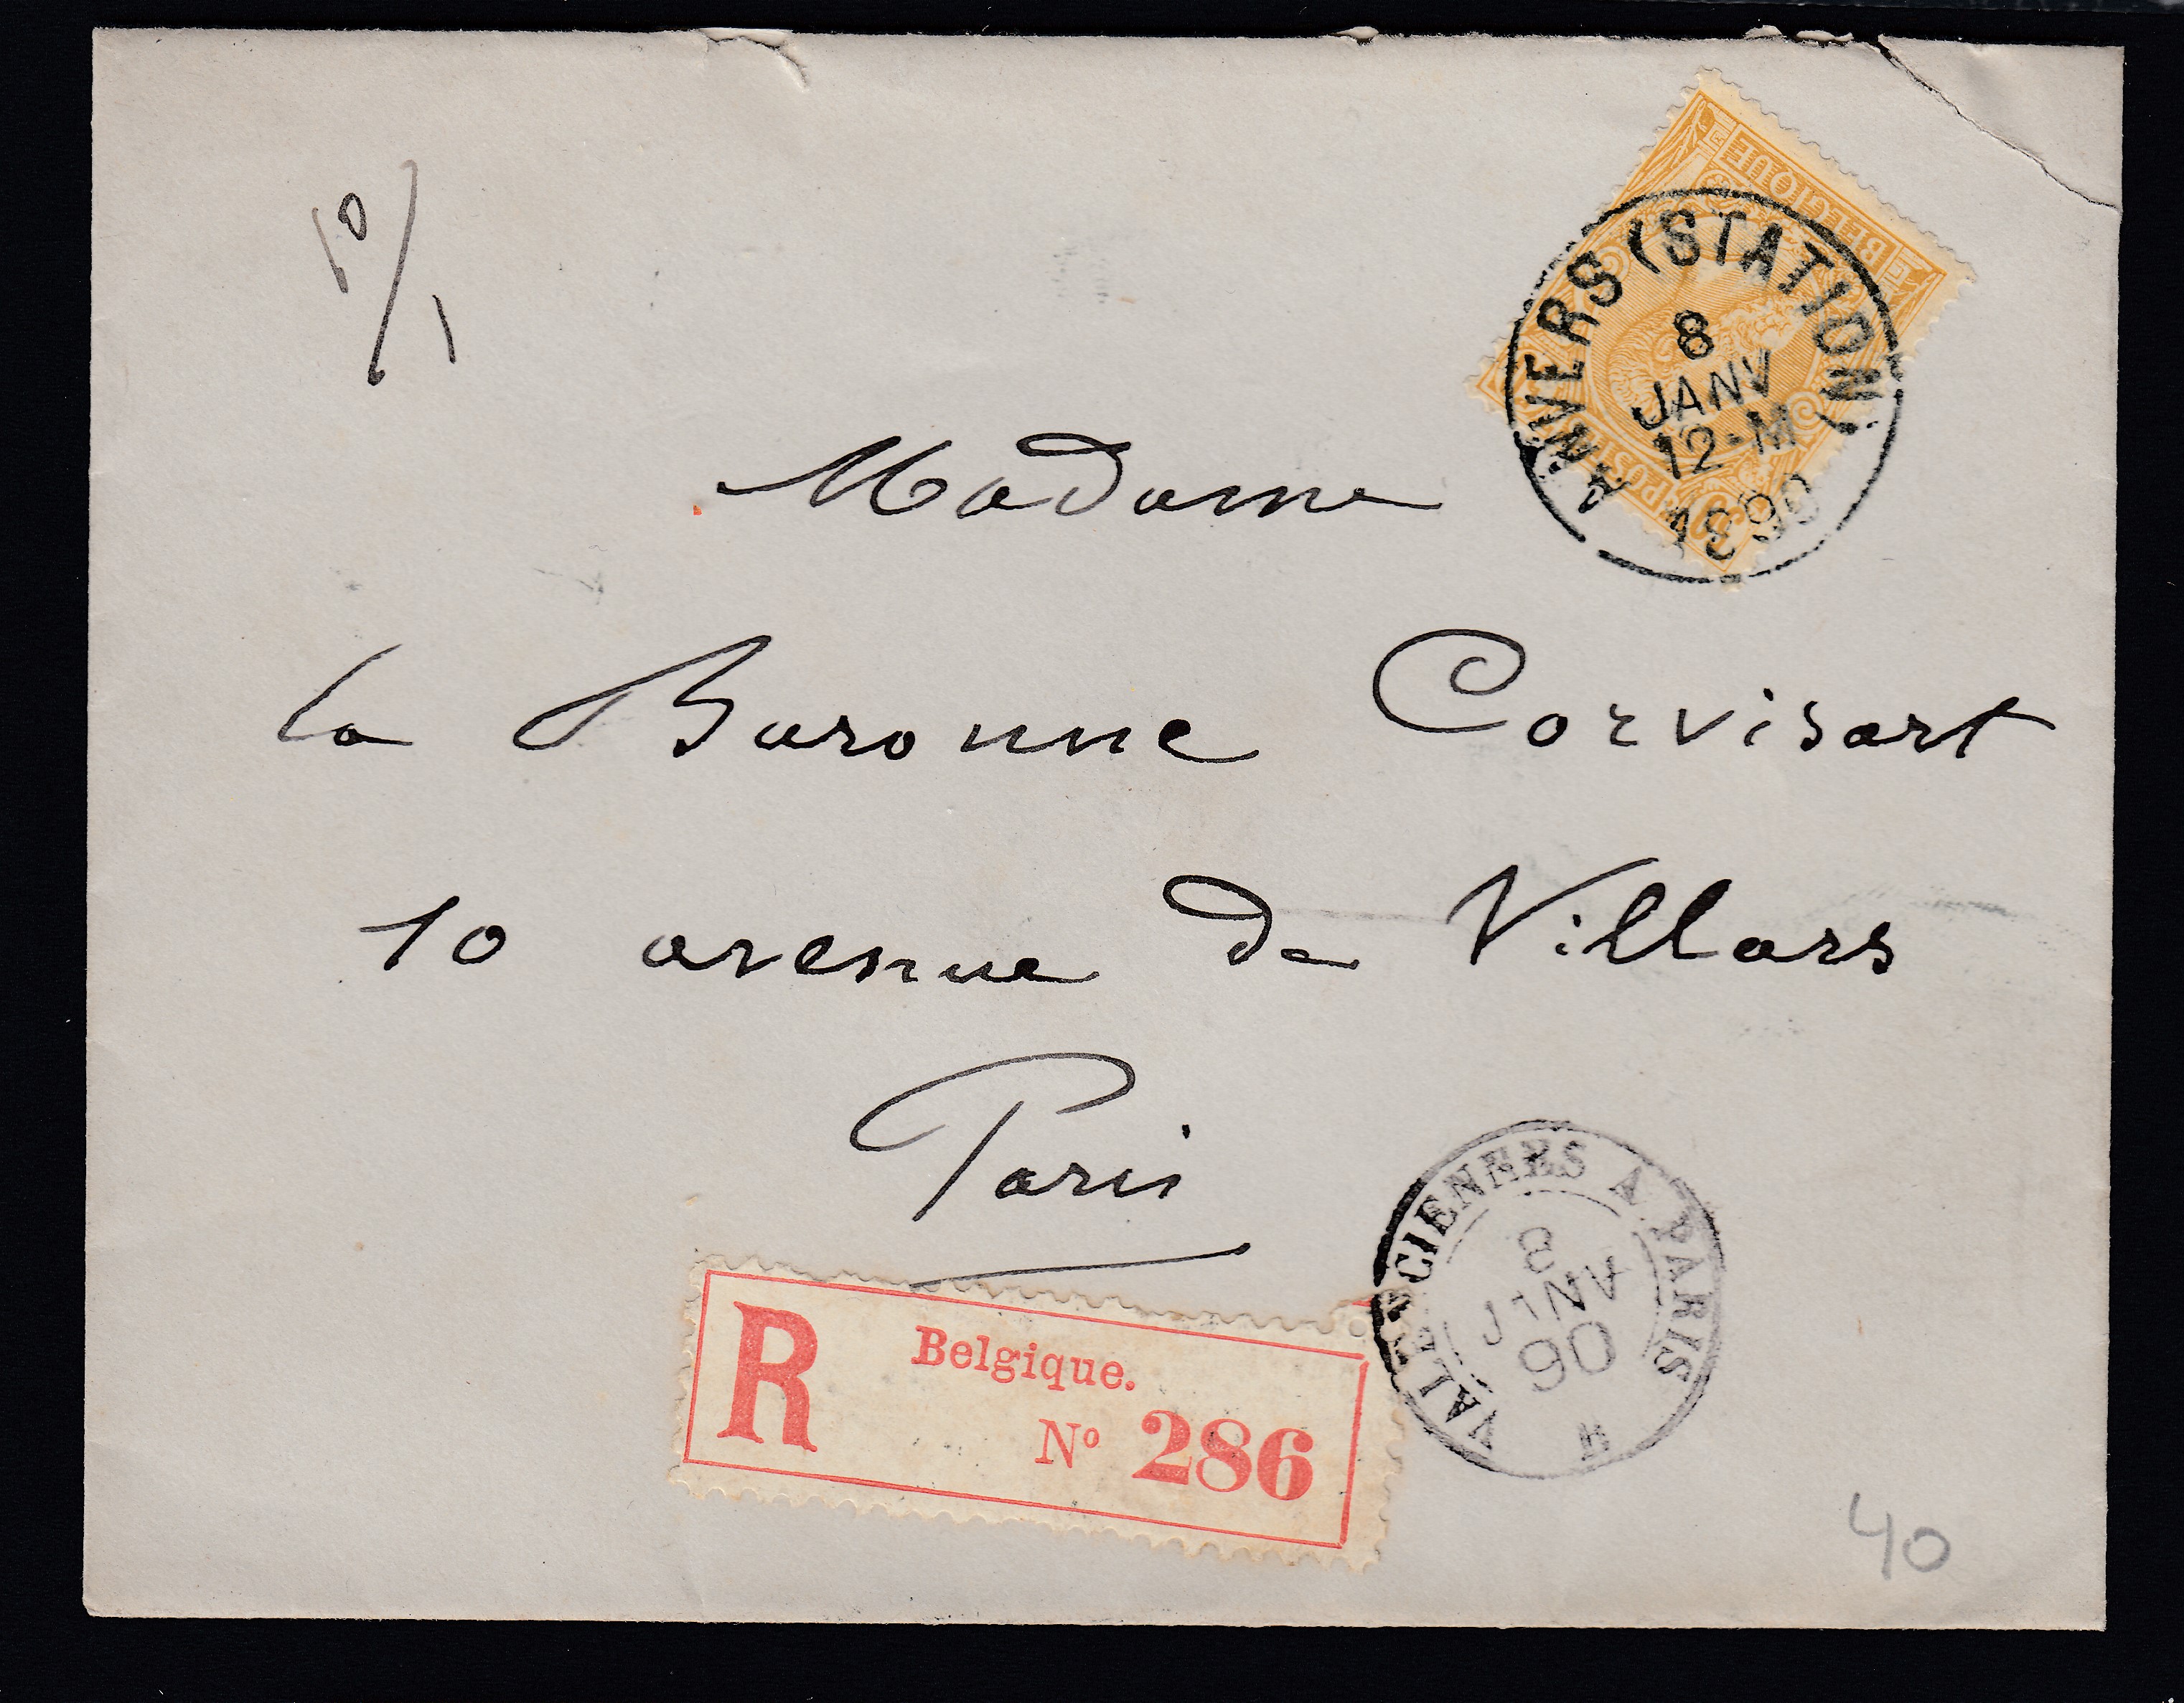 10/1
BELGIQUE
POSTES
50
ANVERS (STATION)
8
JANV
12-M
1890
Madame
la Baronne Corvisart
10 avenue de Villars
Paris
R Belgique.
Nº 286
VALENCIENNES A PARIS
8
JANV
90
40